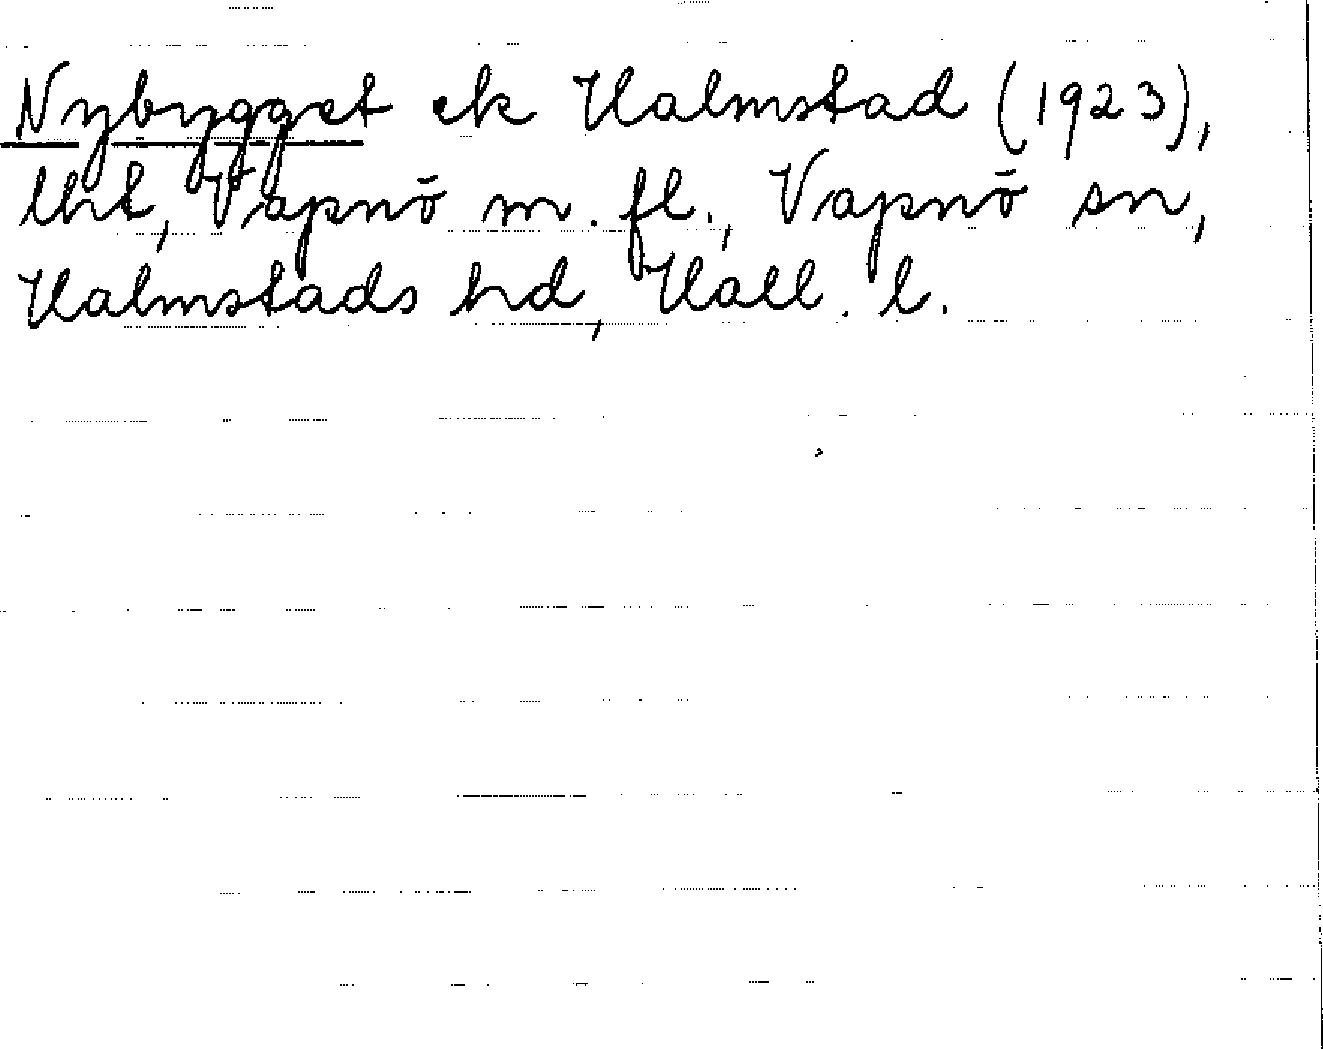 Nybygget ek Halmstad (1923),
lht, Vapnö m. fl., Vapnö sn,
Halmstads hd, Hall. l.